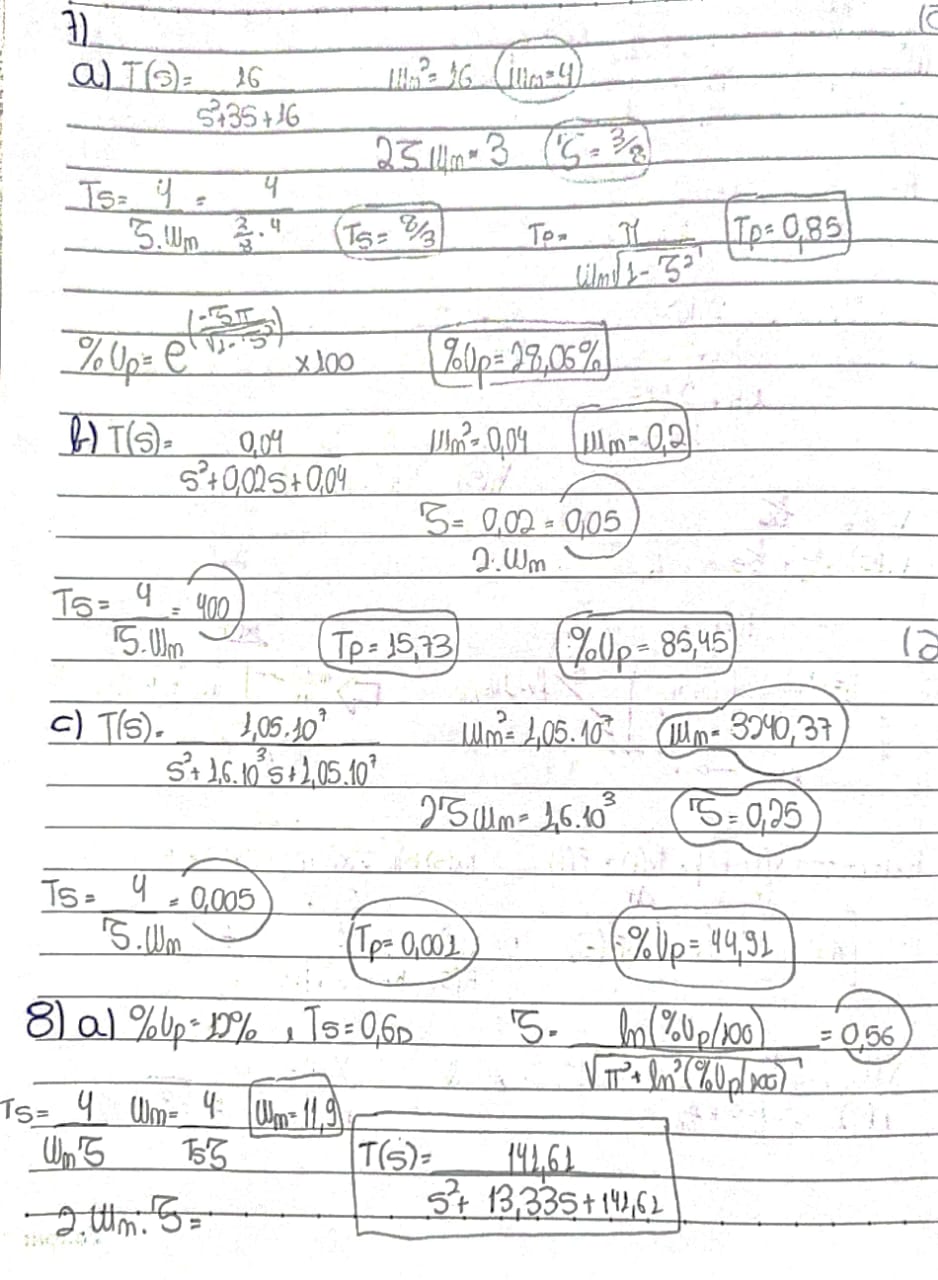 7)
a) T(s) = 16 / s²+3s+16   Wn² = 16   Wn = 4
2ζWn = 3   ζ = 3/8
Ts = 4 / ζ.Wn = 4 / 3/8 . 4   Ts = 8/3   Tp = π / Wn√1-ζ²   Tp = 0,85
%Up = e^(-ζπ/√1-ζ²) x100   %Up = 28,06%
b) T(s) = 0,04 / s²+0,02s+0,04   Wn² = 0,04   Wn = 0,2
ζ = 0,02 / 2.Wn = 0,05
Ts = 4 / ζ.Wn = 400   Tp = 15,73   %Up = 85,45
c) T(s) = 1,05.10⁷ / s²+1,6.10³s+1,05.10⁷   Wn² = 1,05.10⁷   Wn = 3240,37
2ζWn = 1,6.10³   ζ = 0,25
Ts = 4 / ζ.Wn = 0,005   Tp = 0,001   %Up = 44,91
8) a) %Up = 12% , Ts = 0,6s   ζ = ln(%Up/100) / √π²+ln²(%Up/100) = 0,56
Ts = 4 / Wnζ   Wn = 4 / Tsζ   Wn = 11,9
T(s) = 141,61 / s²+13,33s+141,61
2.Wn.ζ =